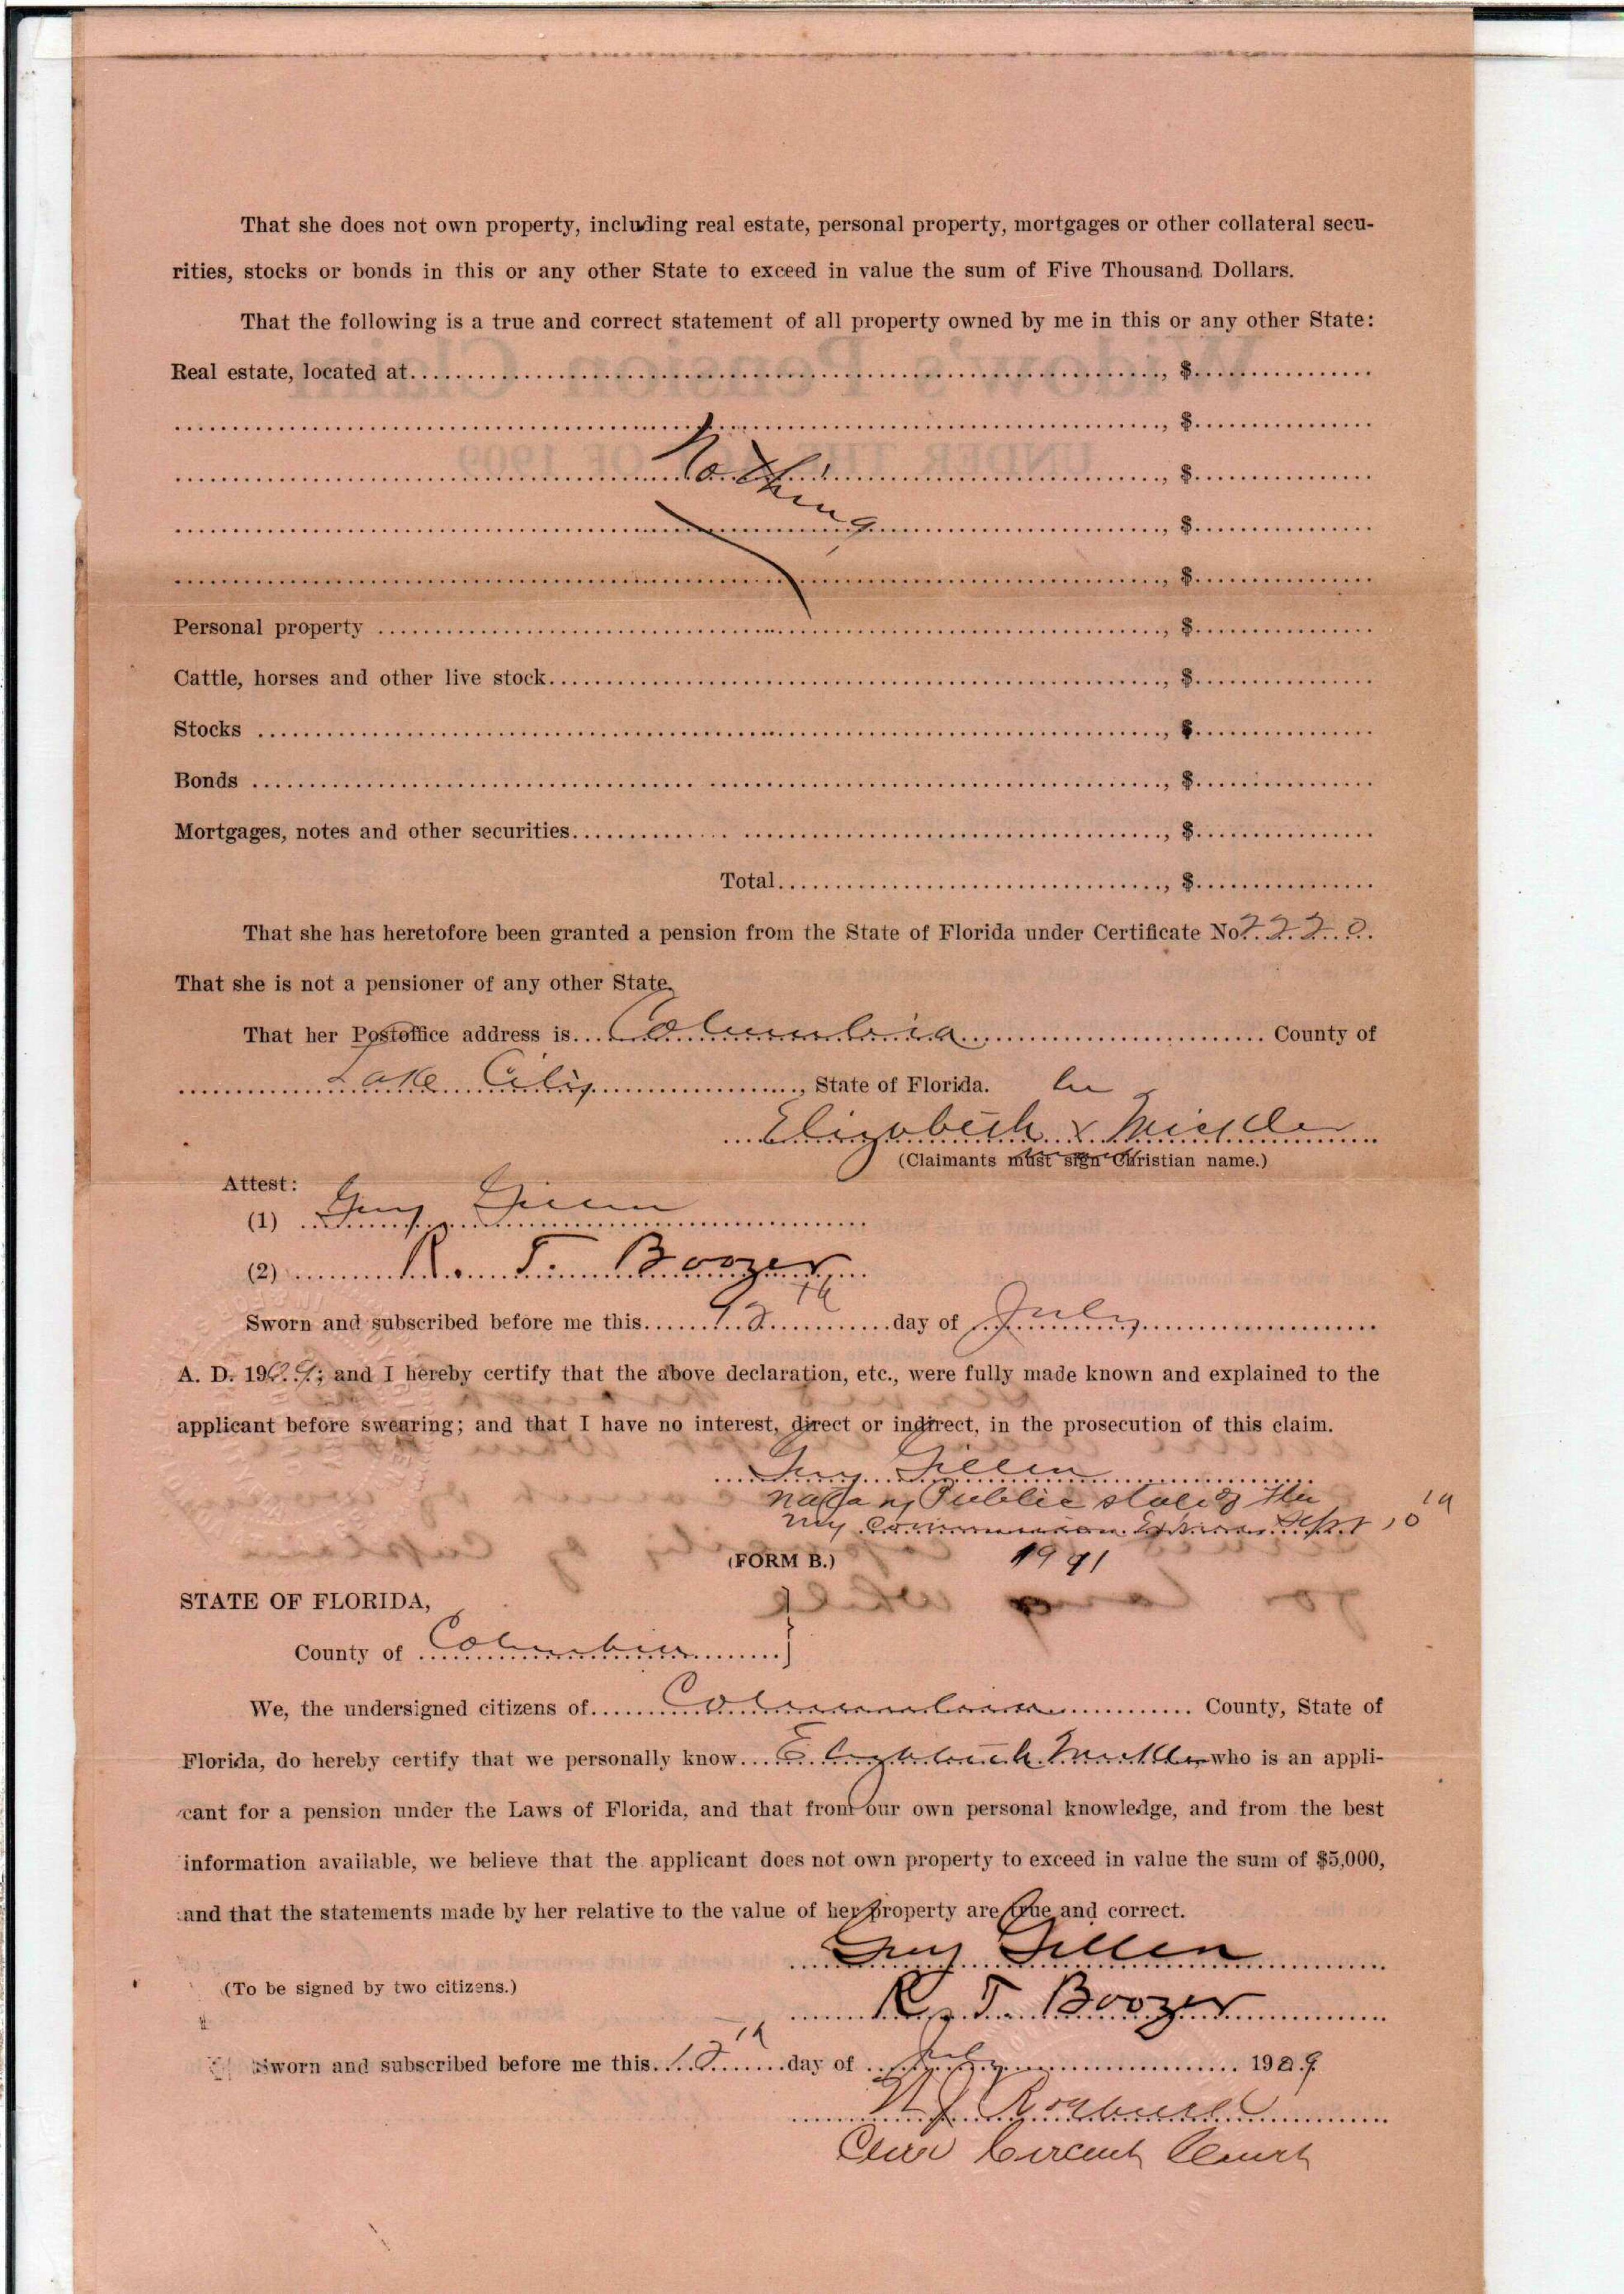 That she does not own property, including real estate, personal property, mortgages or other collateral secu-
rities, stocks or bonds in this or any other State to exceed in value the sum of Five Thousand Dollars.
That the following is a true and correct statement of all property owned by me in this or any other State:
Real estate, located at , $
, $
Nothing , $
, $
, $
Personal property , $
Cattle, horses and other live stock , $
Stocks , $
Bonds , $
Mortgages, notes and other securities , $
Total , $
That she has heretofore been granted a pension from the State of Florida under Certificate No
That she is not a pensioner of any other State.
That her Postoffice address is Columbia County of
Lake City , State of Florida. her
Elizabeth x
(Claimants must sign Christian name.)
mark
Attest:
(1) Guy Gillen
(2) R. T. Boozer
Sworn and subscribed before me this 12th day of July
A. D. 1909; and I hereby certify that the above declaration, etc., were fully made known and explained to the
applicant before swearing; and that I have no interest, direct or indirect, in the prosecution of this claim.
Guy Gillen
Notary Public State of Fla
My Commission Expires Sept 10th
(FORM B.) 1911
STATE OF FLORIDA,
County of Columbia
We, the undersigned citizens of Columbia County, State of
Florida, do hereby certify that we personally know Elizabeth who is an appli-
cant for a pension under the Laws of Florida, and that from our own personal knowledge, and from the best
information available, we believe that the applicant does not own property to exceed in value the sum of $5,000,
and that the statements made by her relative to the value of her property are true and correct.
Guy Gillen
(To be signed by two citizens.)
R. T. Boozer
Sworn and subscribed before me this 12th day of July 1909
Clerk Circuit Court